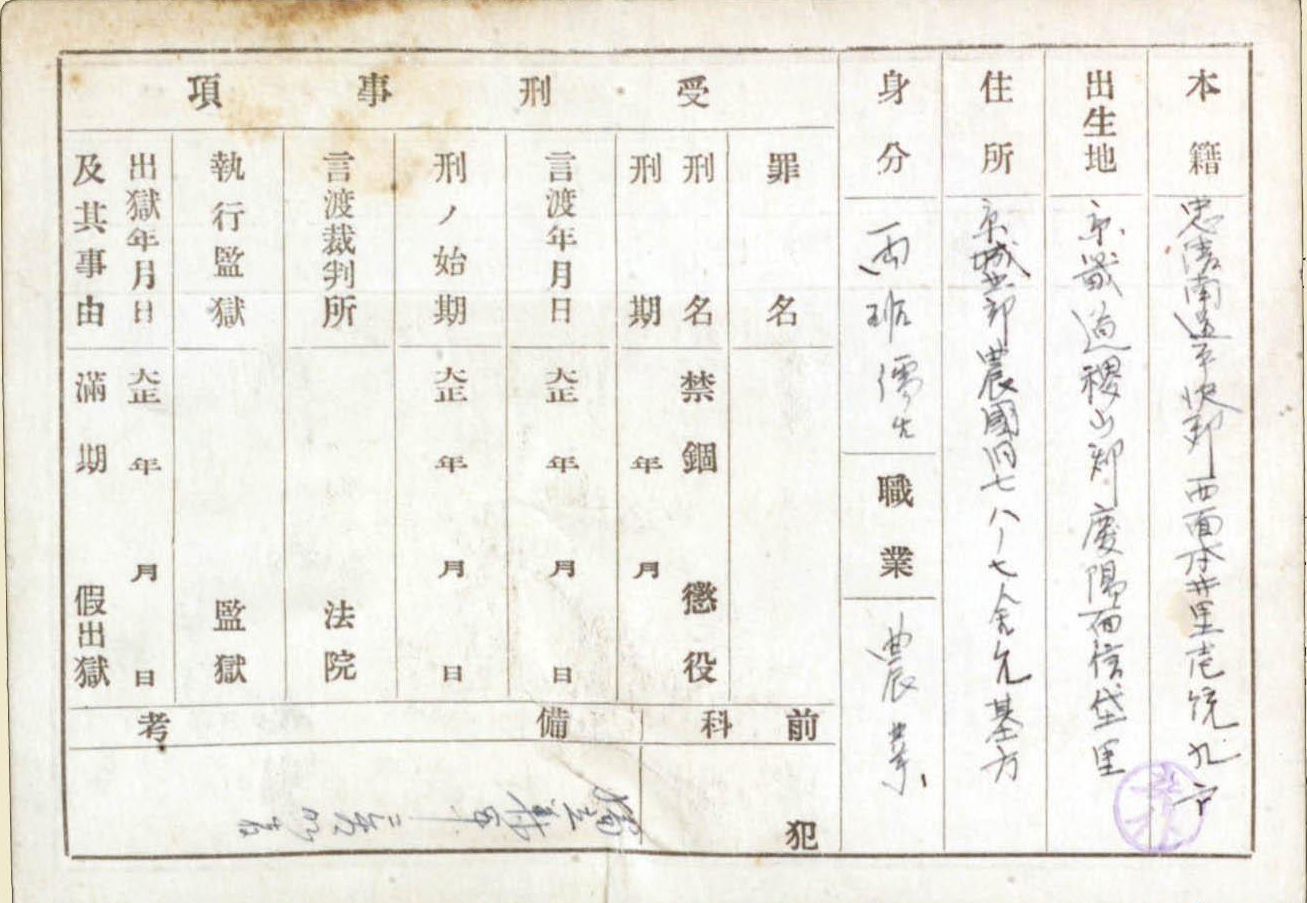 本籍
忠清南道平沢郡西面本井里壱統九戸
出生地
京畿道稷山郡慶陽面信垈里
住所
京城北部農國同七八ノ七
身分
両班儒生
職業
農業
受刑事項
罪名
刑名
禁錮 懲役
刑期
年 月
言渡年月日
大正 年 月 日
刑ノ始期
大正 年 月 日
言渡裁判所
法院
執行監獄
監獄
出獄年月日
大正 年 月 日
及其事由
滿期 假出獄
前科
犯
備考